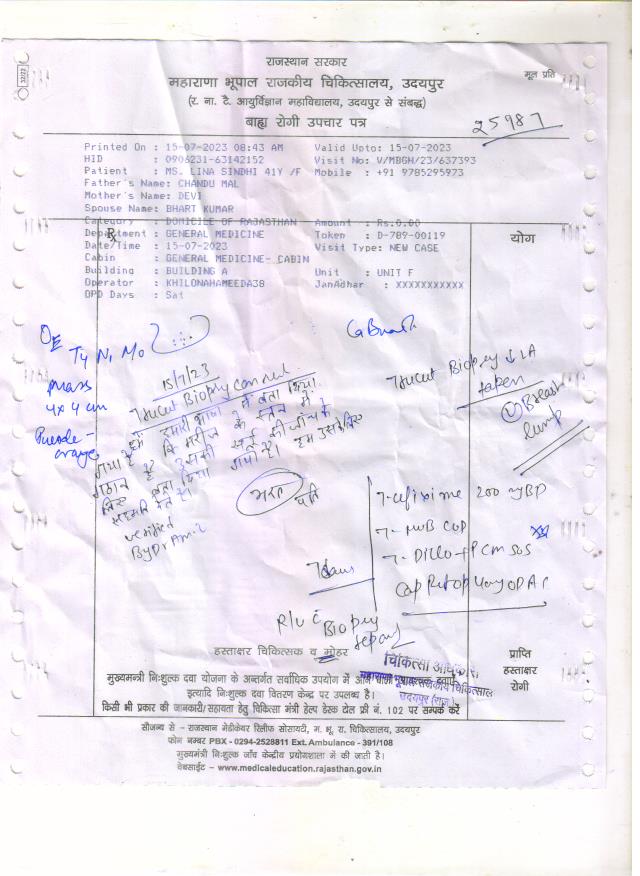 राजस्थान सरकार
महाराणा भूपाल राजकीय चिकित्सालय, उदयपुर
मूल प्रति
(र. ना. टै. आयुर्विज्ञान महाविद्यालय, उदयपुर से संबद्ध)
बाह्य रोगी उपचार पत्र
25987
Printed On : 15-07-2023 08:43 AM Valid Upto: 15-07-2023
HID : 0906231-63142152 Visit No: V/MBGH/23/637393
Patient : MS. LINA SINDHI 41Y /F Mobile : +91 9785295973
Father's Name: CHANDU MAL
Mother's Name: DEVI
Spouse Name: BHART KUMAR
Category : DOMICILE OF RAJASTHAN Amount : Rs.0.00
Department : GENERAL MEDICINE Token : D-789-00119
योग
Date/Time : 15-07-2023 Visit Type: NEW CASE
Cabin : GENERAL MEDICINE- CABIN
Building : BUILDING A Unit : UNIT F
Operator : KHILONAHAMEEDA38 JanAdhar : XXXXXXXXXXX
OPD Days : Sat
O/E
T4 N1 M0
mass
4x4 cm
15/7/23
Trucut Biopsy
हमे हमारी भाषा में बता दिया
गया है कि मरीज के स्तन में
गठान है
verified
By Dr Amit
भरत पति
Ca Breast
Trucut Biopsy ↓ LA
taken
Breast
lump
T- cefixime 200 mg BD
T- MVB COD
T- Diclo + PCM SOS
7 days
R/v c
Biopsy
report
हस्ताक्षर चिकित्सक व मोहर
प्राप्ति
हस्ताक्षर
रोगी
चिकित्सा अधिकारी
उदयपुर (राज.)
मुख्यमन्त्री निःशुल्क दवा योजना के अन्तर्गत सर्वाधिक उपयोग में आने वाली
इत्यादि निःशुल्क दवा वितरण केन्द्र पर उपलब्ध है।
किसी भी प्रकार की जानकारी/सहायता हेतु चिकित्सा मंत्री हेल्प डेस्क टोल फ्री नं. 102 पर सम्पर्क करें
सौजन्य से - राजस्थान मेडीकेयर रिलीफ सोसायटी, म. भू. रा. चिकित्सालय, उदयपुर
फोन नम्बर PBX - 0294-2528811 Ext. Ambulance - 391/108
मुख्यमंत्री निःशुल्क जाँच केन्द्रीय प्रयोगशाला में की जाती है।
वेबसाईट – www.medicaleducation.rajasthan.gov.in